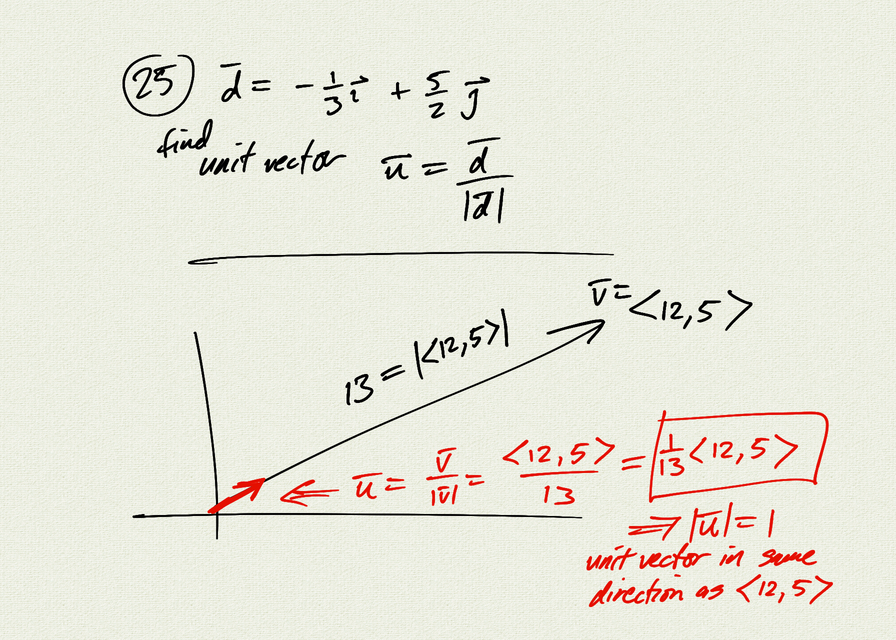 25 d̅ = -1/3 i⃗ + 5/2 j⃗
find
unit vector u̅ = d̅/|d̅|
v̅ = <12,5>
13 = |<12,5>|
u̅ = v̅/|v̅| = <12,5>/13 = 1/13 <12,5>
⇒ |u̅| = 1
unit vector in same
direction as <12,5>